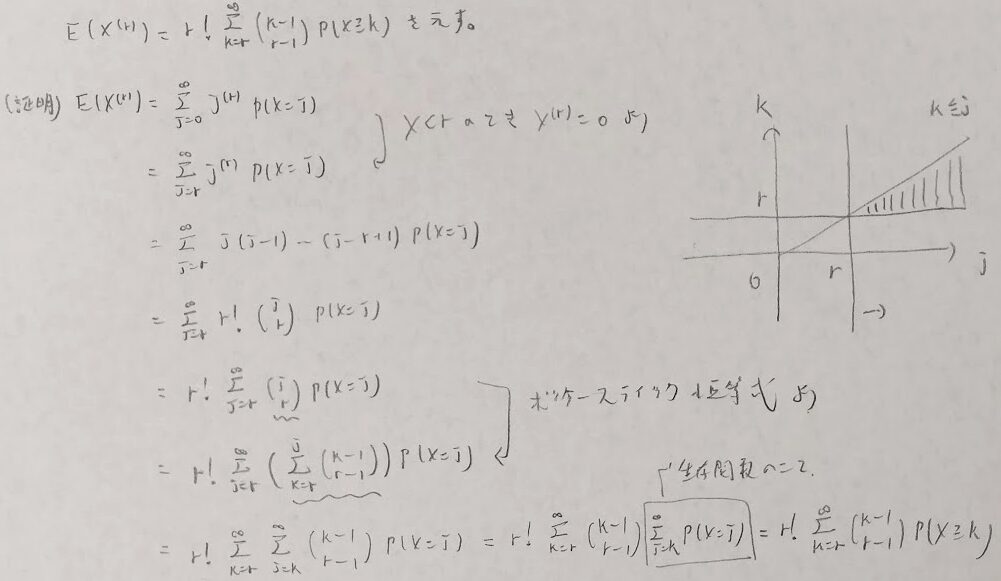 E(X^{(r)}) = r! \sum_{k=r}^{\infty} \binom{k-1}{r-1} P(X≧k) を示す。
(証明) E(X^{(r)}) = \sum_{j=0}^{\infty} j^{(r)} P(X=j)
X<r のとき X^{(r)}=0 より
= \sum_{j=r}^{\infty} j^{(r)} P(X=j)
= \sum_{j=r}^{\infty} j(j-1) - (j-r+1) P(X=j)
= \sum_{j=r}^{\infty} r! \binom{j}{r} P(X=j)
= r! \sum_{j=r}^{\infty} \binom{j}{r} P(X=j)
ホッケースティック恒等式 より
= r! \sum_{j=r}^{\infty} ( \sum_{k=r}^{j} \binom{k-1}{r-1} ) P(X=j)
生存関数のこと.
= r! \sum_{k=r}^{\infty} \sum_{j=k}^{\infty} \binom{k-1}{r-1} P(X=j) = r! \sum_{k=r}^{\infty} \binom{k-1}{r-1} \sum_{j=k}^{\infty} P(X=j) = r! \sum_{k=r}^{\infty} \binom{k-1}{r-1} P(X≧k)
k
k≦j
r
0
r
j